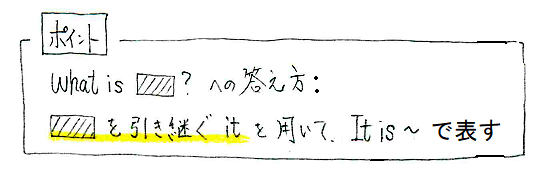 ポイント
What is ? への答え方:
を引き継ぐ it を用いて、It is ~ で表す